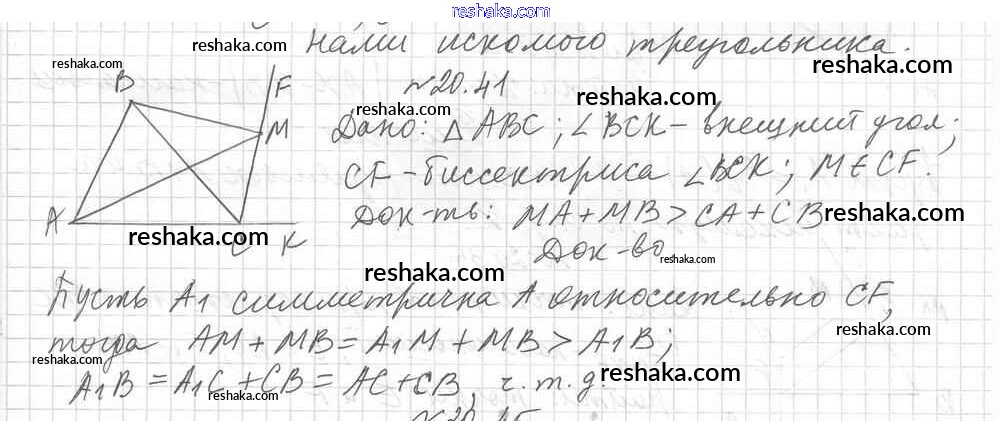 reshaka.com
нами искомого треугольника.
reshaka.com
reshaka.com
reshaka.com
B
F
№20.41
reshaka.com
reshaka.com
M
Дано: △ABC; ∠BCK - внешний угол;
CF - биссектриса ∠BCK; M ∈ CF.
A
C
K
reshaka.com
Док-ть: MA + MB > CA + CB
reshaka.com
Док-во
reshaka.com
reshaka.com
Пусть A₁ симметрична A относительно CF,
reshaka.com
тогда AM + MB = A₁M + MB > A₁B;
reshaka.com
A₁B = A₁C + CB = AC + CB, ч.т.д.
reshaka.com